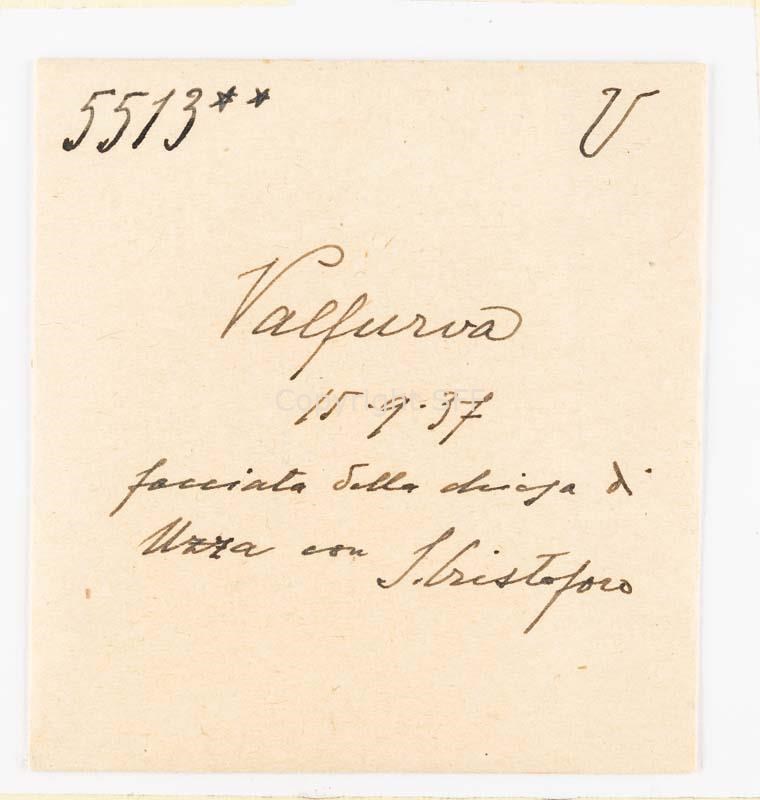 5513** V
Valfurva
15·9·37
facciata della chiesa di
Uzza con S. Cristoforo
Copyright SEF